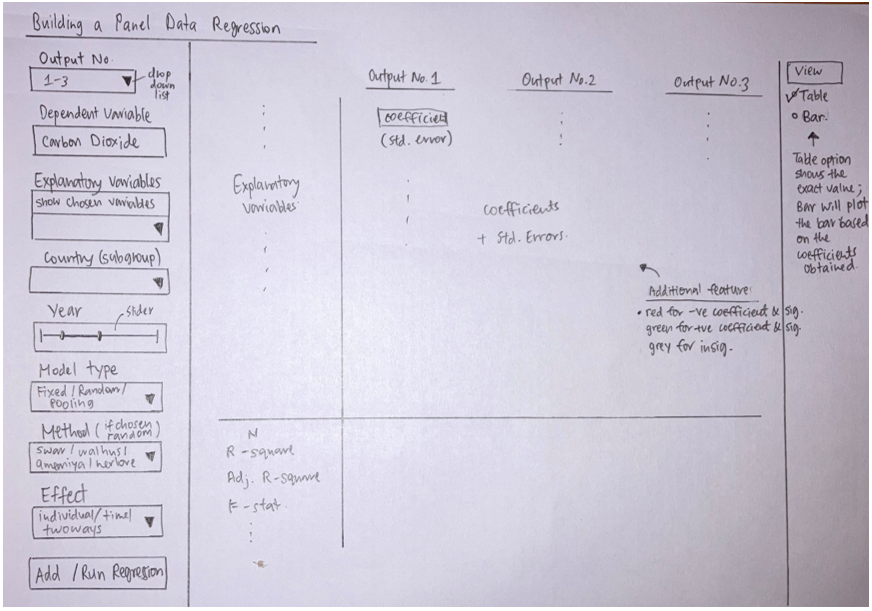 Building a Panel Data Regression
Output No.
1-3
drop
down
list
Dependent Variable
Carbon Dioxide
Explanatory Variables
show chosen variables
Country (subgroup)
Year
slider
Model type
Fixed / Random /
Pooling
Method ( if chosen
random)
swar / walhus /
amemiya / nerlove
Effect
individual / time /
twoways
Add / Run Regression
Explanatory
variables
N
R-square
Adj. R-square
F-stat.
Output No. 1
coefficient
(std. error)
Output No. 2
coefficients
+ Std. Errors.
Output No. 3
Additional feature:
• red for -ve coefficient & sig.
green for +ve coefficient & sig.
grey for insig.
View
Table
Bar.
Table option
shows the
exact value;
Bar will plot
the bar based
on the
coefficients
obtained.